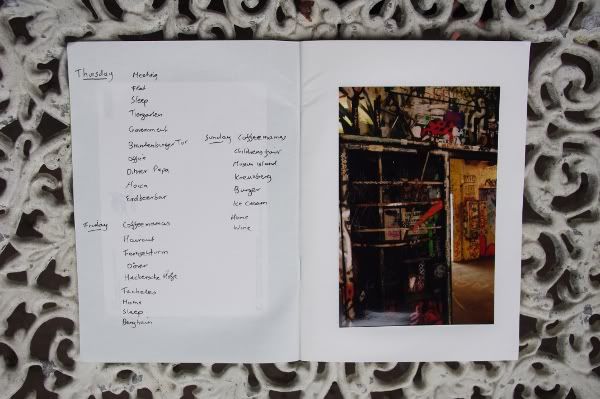 Thursday Meeting
Flat
Sleep
Tiergarten
Government
Brandenburger Tor
Office
Dinner Papa
Mocca
Erdbeerbar
Friday Coffeemamas
Haircut
Fernsehturm
Döner
Hackesche Höfe
Tacheles
Home
Sleep
Berghain
Sunday Coffeemamas
Museum island
Kreuzberg
Burger
Ice cream
Home
Wine